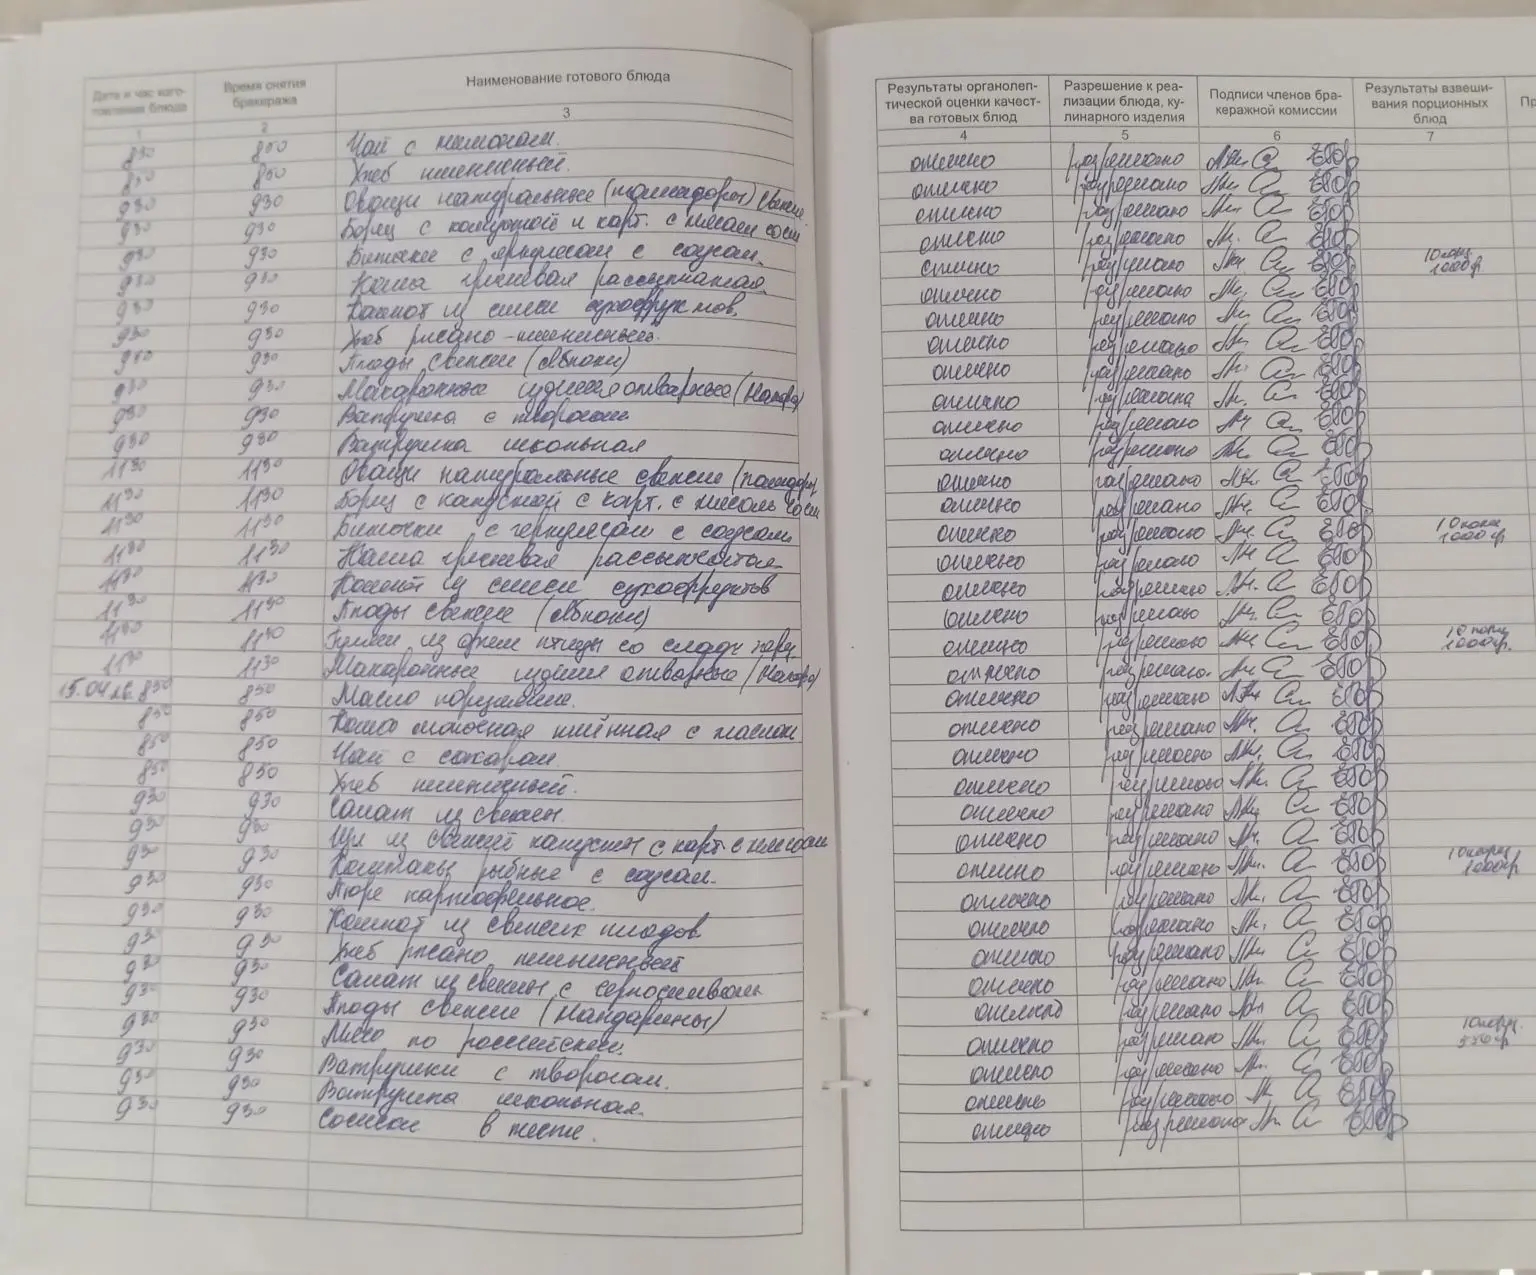 Дата и час изготовления блюда | Время снятия бракеража | Наименование готового блюда | Результаты органолептической оценки качества готовых блюд | Разрешение к реализации блюда, кулинарного изделия | Подписи членов бракеражной комиссии | Результаты взвешивания порционных блюд | Пр
1 | 2 | 3 | 4 | 5 | 6 | 7
8 50 | 8 50 | Чай с лимоном. | отлично | разрешено
8 50 | 8 50 | Хлеб пшеничный. | отлично | разрешено
9 30 | 9 30 | Овощи натуральные (помидоры) свежие | отлично | разрешено
9 30 | 9 30 | Борщ с капустой и карт. с мясом со см | отлично | разрешено
9 30 | 9 30 | Биточки с геркулесом с соусом. | отлично | разрешено | 10 порц. 1000 гр
9 30 | 9 30 | Каша гречневая рассыпчатая | отлично | разрешено
9 30 | 9 30 | Компот из смеси сухофруктов. | отлично | разрешено
9 30 | 9 30 | Хлеб ржано-пшеничный. | отлично | разрешено
9 30 | 9 30 | Плоды свежие (яблоки) | отлично | разрешено
9 30 | 9 30 | Макаронные изделия отварные | отлично | разрешено
9 30 | 9 30 | Ватрушка с творогом | отлично | разрешено
9 30 | 9 30 | Ватрушка школьная | отлично | разрешено
11 30 | 11 30 | Овощи натуральные свежие (помидоры | отлично | разрешено
11 30 | 11 30 | Борщ с капустой с карт. с мясом со см | отлично | разрешено
11 30 | 11 30 | Биточки с геркулесом с соусом | отлично | разрешено | 10 порц. 1000 гр
11 30 | 11 30 | Каша гречневая рассыпчатая | отлично | разрешено
11 30 | 11 30 | Компот из смеси сухофруктов | отлично | разрешено
11 30 | 11 30 | Плоды свежие (яблоки) | отлично | разрешено
11 30 | 11 30 | из филе птицы со слад. перц. | отлично | разрешено | 10 порц. 1000 гр.
11 30 | 11 30 | Макаронные изделия отварные | отлично | разрешено
15.04.26. 8 50 | 8 50 | Масло порциями. | отлично | разрешено
8 50 | 8 50 | Каша молочная пшённая с маслом | отлично | разрешено
8 50 | 8 50 | Чай с сахаром. | отлично | разрешено
8 50 | 8 50 | Хлеб пшеничный. | отлично | разрешено
9 30 | 9 30 | Салат из свеклы. | отлично | разрешено
9 30 | 9 30 | Щи из свежей капусты с карт. с мясом | отлично | разрешено
9 30 | 9 30 | рыбные с соусом. | отлично | разрешено | 10 порц. 1000 гр
9 30 | 9 30 | Пюре картофельное. | отлично | разрешено
9 30 | 9 30 | Компот из свежих плодов | отлично | разрешено
9 30 | 9 30 | Хлеб ржано пшеничный | отлично | разрешено
9 30 | 9 30 | Салат из свеклы с черносливом | отлично | разрешено
9 30 | 9 30 | Плоды свежие (мандарины) | отлично | разрешено
9 30 | 9 30 | Мясо по российски. | отлично | разрешено | 10 порц.
9 30 | 9 30 | Ватрушки с творогом. | отлично | разрешено
9 30 | 9 30 | Ватрушка школьная. | отлично | разрешено
9 30 | 9 30 | Сосиски в тесте. | отлично | разрешено